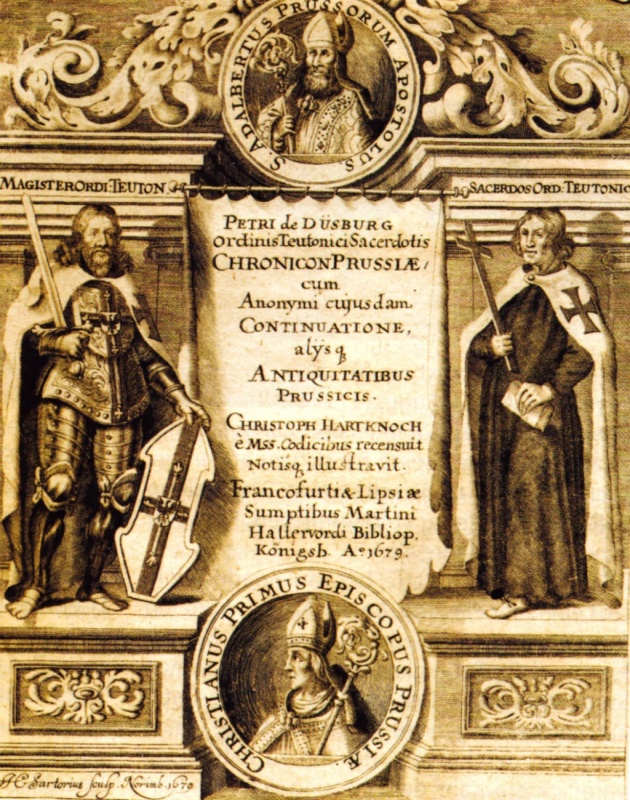 S. ADALBERTUS PRUSSORUM APOSTOLUS.
MAGISTER ORDI: TEUTON
SACERDOS ORD: TEUTONIC
PETRI de DÜSBURG
Ordinis Teutonici Sacerdotis
CHRONICON PRUSSIÆ,
cum
Anonymi cujusdam
CONTINUATIONE,
alÿs q
ANTIQUITATIBUS
PRUSSICIS.
CHRISTOPH HARTKNOCH
è Mss. Codicibus recensuit
Notisq illustravit.
Francofurti & Lipsiæ
Sumptibus Martini
Hallervordi Bibliop.
Königsb. Aº 1679.
CHRISTIANUS PRIMUS EPISCOPUS PRUSSIÆ
HC Sartorius sculp. Norimb. 1679